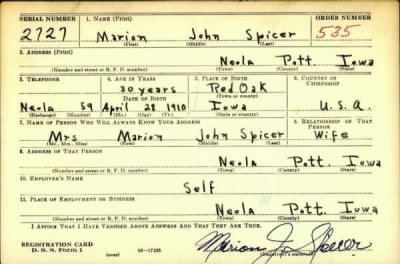 SERIAL NUMBER 1. NAME (Print) ORDER NUMBER
2727 Marion John Spicer 535
(First) (Middle) (Last)
2. ADDRESS (Print)
Neola Pott. Iowa
(Number and street or R. F. D. number) (Town) (County) (State)
3. TELEPHONE 4. AGE IN YEARS 5. PLACE OF BIRTH 6. COUNTRY OF CITIZENSHIP
30 years Red Oak
DATE OF BIRTH (Town or county)
Neola 59 April 28 1910 Iowa U.S.A.
(Exchange) (Number) (Mo.) (Day) (Yr.) (State or country)
7. NAME OF PERSON WHO WILL ALWAYS KNOW YOUR ADDRESS 8. RELATIONSHIP OF THAT PERSON
Mrs Marion John Spicer Wife
(Mr., Mrs., Miss) (First) (Middle) (Last)
9. ADDRESS OF THAT PERSON
Neola Pott. Iowa
(Number and street or R. F. D. number) (Town) (County) (State)
10. EMPLOYER'S NAME
Self
11. PLACE OF EMPLOYMENT OR BUSINESS
Neola Pott. Iowa
(Number and street or R. F. D. number) (Town) (County) (State)
I AFFIRM THAT I HAVE VERIFIED ABOVE ANSWERS AND THAT THEY ARE TRUE.
REGISTRATION CARD
D. S. S. Form 1 (over) 16—17105 Marion J. Spicer
(Registrant's signature)